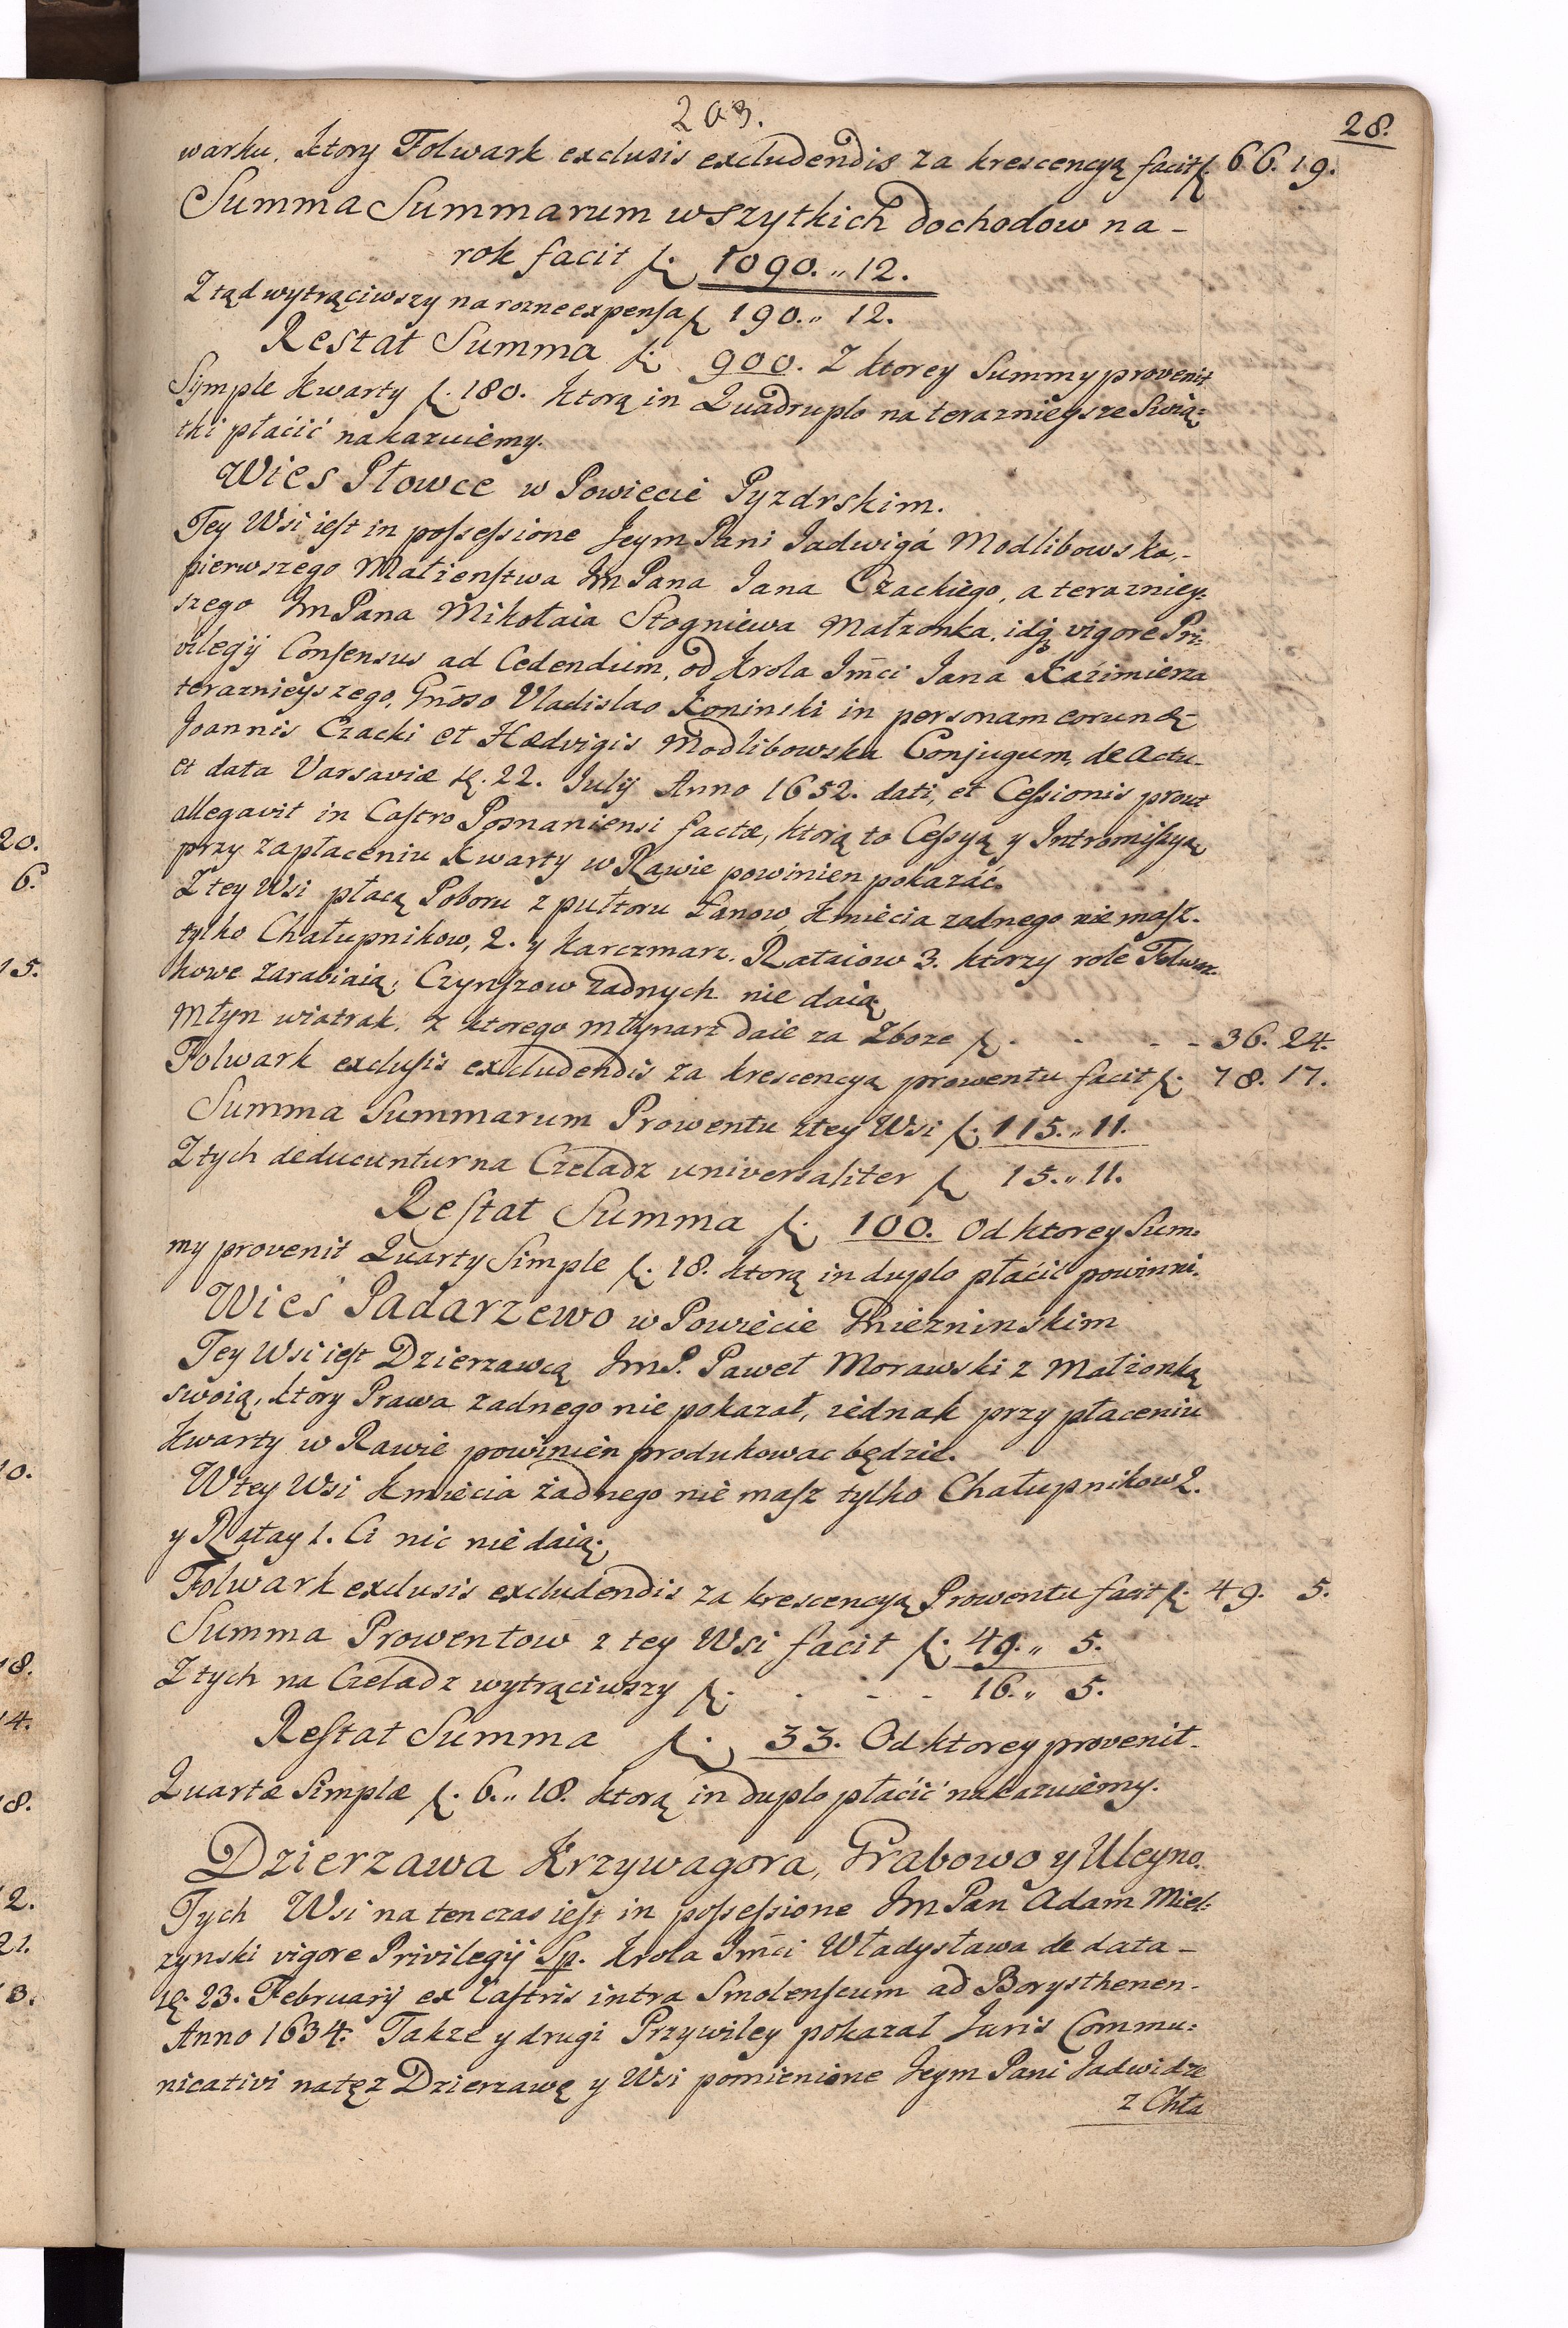 203.
28.
warku, ktory Folwark exclusis excludendis za krescencyą facit f. 66. 19.
Summa Summarum wszytkich dochodow na –
rok facit f. 1090. „ 12.
Z tąd wytrąciwszy na rozne expensa f 190. „ 12.
Restat Summa f. 900. Z ktorey Summy provenit
Symple Kwarty f. 180. ktorą in Quadruplo na terazniejsze Swią=
tki płaćić nakazuiemy.
Wies Płowce w Powiecie Pyzdrskim.
Tey Wsi iest in possessione Jeym Pani Jadwiga Modlibowska,
pierwszego Małżeństwa Jm Pana Jana Czackiego, a terazniey=
szego Jm Pana Mikołaia Stogniewa Małzonka, idq vigore Pri=
vilegij Consensus ad Cedendum, od Krola Jmci Jana Kaźimierza
teraznieyszego, Gnoso Vladislao Koninski in personam eorund
Joannis Czacki et Hedvigis Modlibowska Conjugum, de Actu
et data Varsaviæ d. 22. July Anno 1652. dati, et Cessionis prout
allegavit in Castro Posnaniensi factæ, ktorą to Cessyą y Intromissyą
przy zapłaceniu Kwarty w Rawie powinien pokazać.
Z tey Wsi płacą Poboru z pułtoru Łanow, Kmiecia zadnego nie masz.
tylko Chałupnikow, 2. y karczmarz. Rataiow 3. ktorzy role Folwar
kowe zarabiaią, Czynszow żadnych nie daią
Młyn wiatrak, z ktorego młynarz daie za Zboze f. - - - 36. 24.
Folwark exclusis excludendis za krescencyą prowentu facit f. 78. 17.
Summa Summarum Prowentu z tey Wsi f. 115. „ 11.
Z tych deducuntur na Czeladz universaliter f 15. „ 11.
Restat Summa f. 100. Od ktorey Sum=
my provenit Quarty Simple f. 18. ktorą in duplo płaćić powinni.
Wies Padarzewo w Powiecie Gniezninskim
Tey Wsi iest Dzierzawcą Jm P. Paweł Morawski z Małżonką
swoią, ktory Prawa zadnego nie pokazał, iednak przy płaceniu
Kwarty w Rawie powinien produkowac będzie.
W tey Wsi Kmiecia żadnego nie masz tylko Chałupnikow 2.
y Ratay 1. Ci nic nie daią.
Folwark exclusis excludendis za krescencyą Prowentu facit f. 49. 5.
Summa Prowentow z tey Wsi facit f. 49. „ 5.
Z tych na Czeladz wytrąciwszy f. - - - 16. „ 5.
Restat Summa f. 33. Od ktorey provenit
Quartæ Simplæ f. 6. „ 18. ktorą in duplo płaćić nakazuiemy.
Dzierzawa Krzywagora, Grabowo y Uleyno.
Tych Wsi na ten czas iest in possessione Jm Pan Adam Miel=
zynski vigore Privilegij Sp. Krola Jmci Władysława de data –
d. 23. February ex Castris intra Smolenscum ad Borysthenen.
Anno 1634. Takze y drugi Przywiley pokazał Juris Commu=
nicativi na tęz Dzierzawę y Wsi pomienione Jeym Pani Jadwidze
z Chła
20.
6.
15.
10.
18.
14.
18.
12.
21.
13.